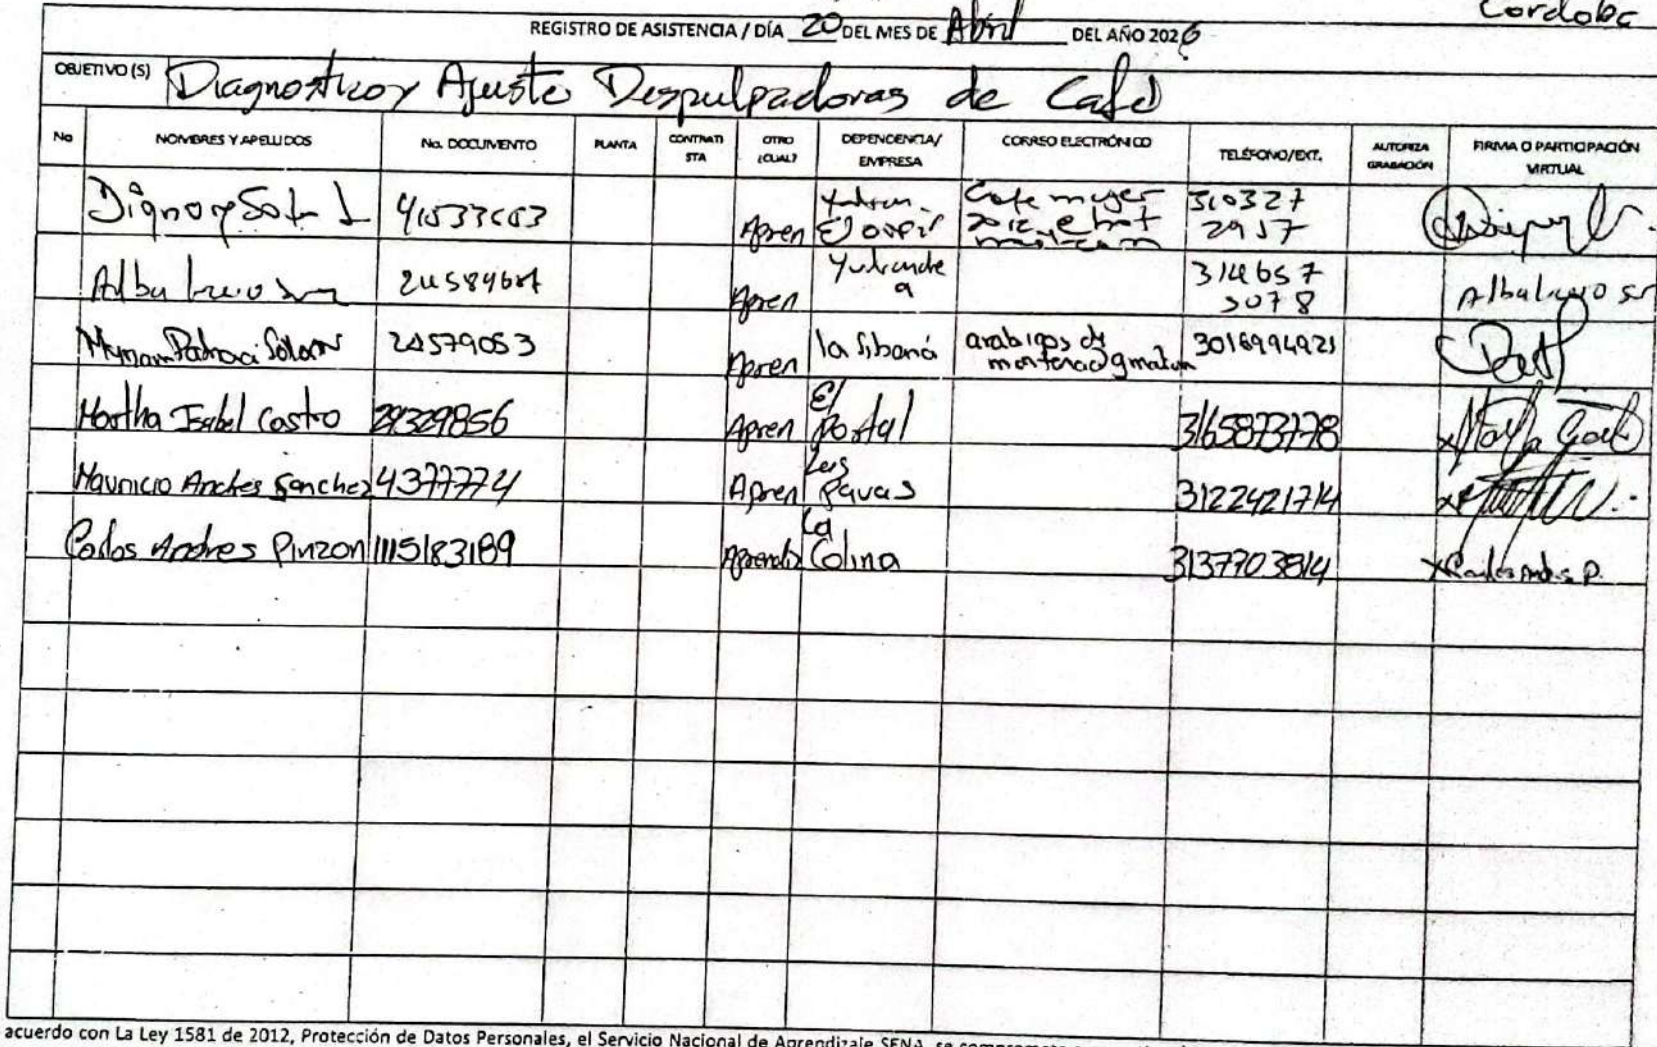 Cordoba
REGISTRO DE ASISTENCIA / DÍA 20 DEL MES DE Abril DEL AÑO 2026
OBJETIVO (S) Diagnostico y Ajuste Despulpadoras de Café
No NOMBRES Y APELLIDOS No. DOCUMENTO PLANTA CONTRATI STA OTRO ¿CUAL? DEPENDENCIA/ EMPRESA CORREO ELECTRÓNICO TELÉFONO/EXT. AUTORIZA GRABACIÓN FIRMA O PARTICIPACIÓN VIRTUAL
Apren Cafe mujer 310327
Alba 24584 Apren 314657
24579053 Apren la Sibaná arabigos de 3016994921
Martha Isabel Castro 29329856 Apren El Portal 3165873178
Mauricio Andres Sanchez 4377774 Apren Las Pavas 3122421714
Carlos Andres Pinzon 1115183189 Aprendiz La Colina 3137703814 x Carlos Andres P.
acuerdo con La Ley 1581 de 2012, Protección de Datos Personales, el Servicio Nacional de Aprendizaje SENA, se compromete